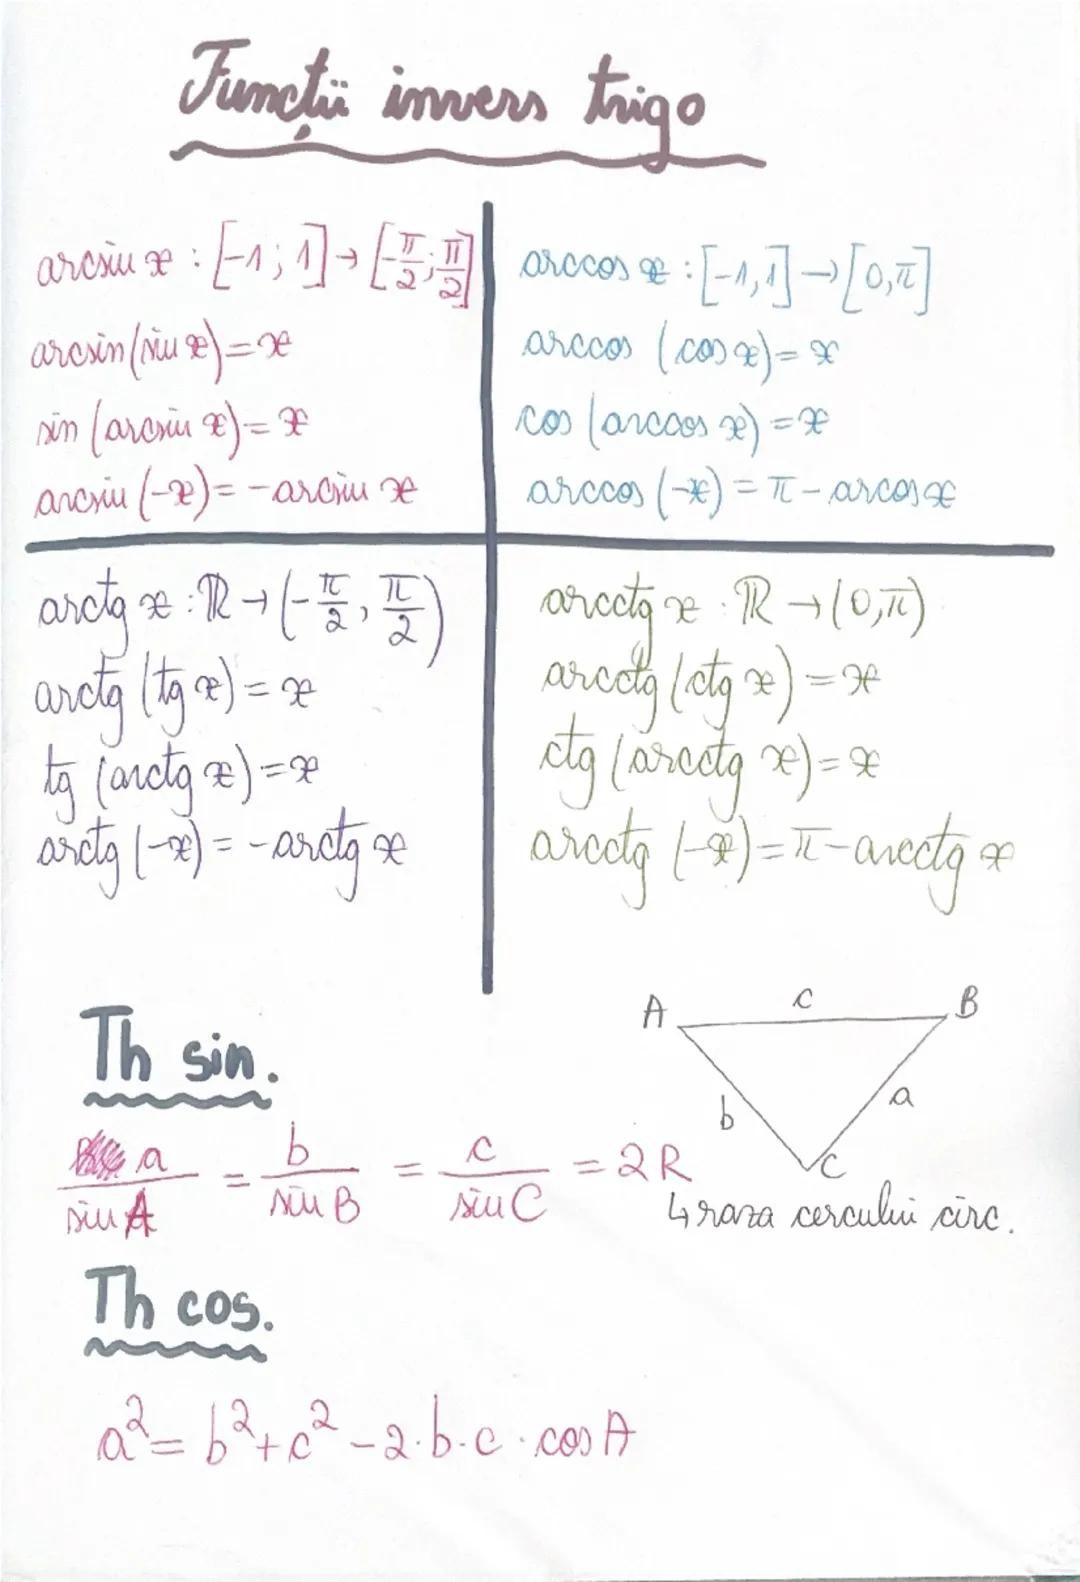 Funcții invers trigo
arcsin x : [-1; 1] → [-π/2; π/2]
arcsin (sin x) = x
sin (arcsin x) = x
arcsin (-x) = - arcsin x
arccos x : [-1, 1] → [0, π]
arccos (cos x) = x
cos (arccos x) = x
arccos (-x) = π - arcos x
arctg x : ℝ → (-π/2, π/2)
arctg (tg x) = x
tg (arctg x) = x
arctg (-x) = - arctg x
arcctg x : ℝ → (0, π)
arcctg (ctg x) = x
ctg (arcctg x) = x
arcctg (-x) = π - arcctg x
Th sin.
a/sin A = b/sin B = c/sin C = 2R
↳ raza cercului circ.
A c B
b a
C
Th cos.
a² = b² + c² - 2·b·c·cos A